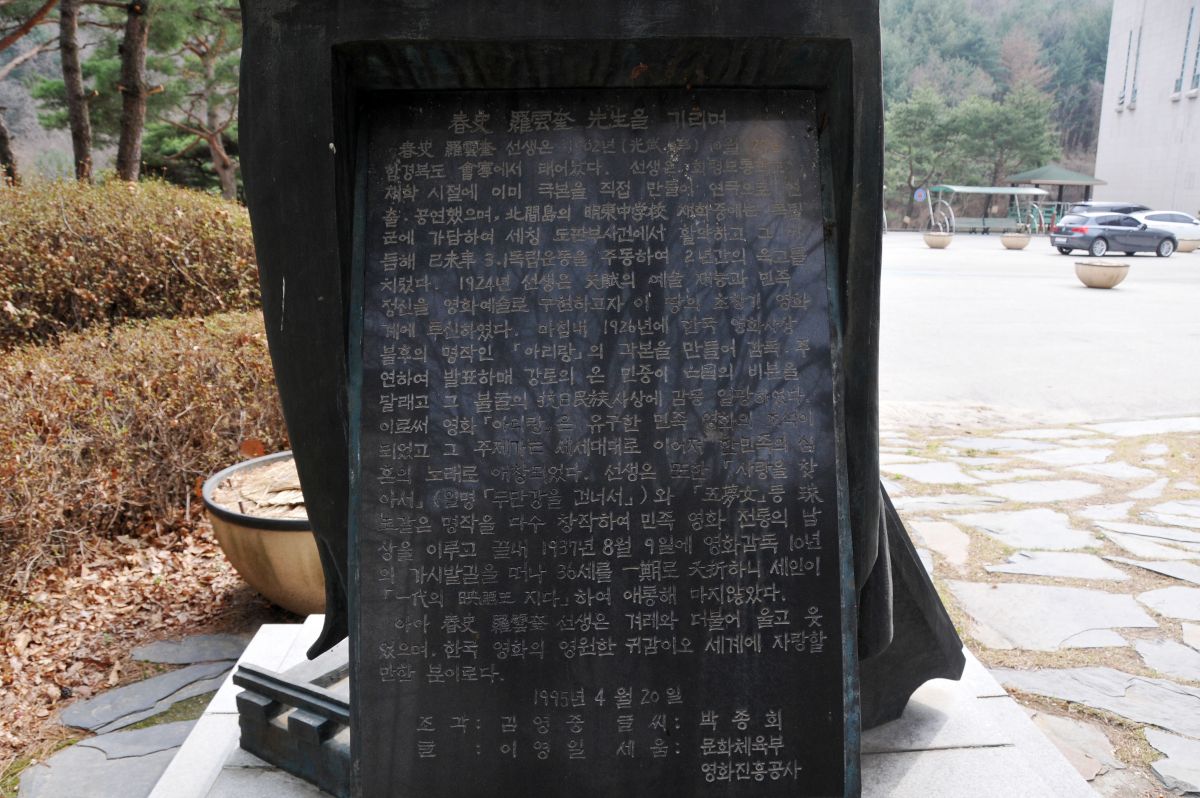 春史 羅雲奎 先生을 기리며
春史 羅雲奎 선생은 1902년(光武 6年) 10월
함경북도 會寧에서 태어났다. 선생은 회령보통학교
재학 시절에 이미 극본을 직접 만들어 연극으로 연
출·공연했으며, 北間島의 明東中学校 재학중에는 독립
군에 가담하여 세칭 도판부사건에서 활약하고, 그
듬해 己未年 3.1독립운동을 주동하여 2년간의 옥고를
치렀다. 1924년 선생은 天賦의 예술 재능과 민족
정신을 영화예술로 구현하고자 이 땅의 초창기 영화
계에 투신하였다. 마침내 1926년에 한국 영화사상
불후의 명작인 「아리랑」의 각본을 만들어 감독·주
연하여 발표하매 강토의 온 민중이 亡國의 비분을
달래고 그 불굴의 抗日民族사상에 감동 열광하였다.
이로써 영화 「아리랑」은 유구한 민족 영화의 주석이
되었고 그 주제가는 세세대대로 이어져 한민족의 심
혼의 노래로 애창되었다. 선생은 또한 「사랑을 찾
아서」(일명 「두만강을 건너서」)와 「五夢女」등 珠
논같은 명작을 다수 창작하여 민족 영화 전통의 남
상을 이루고 끝내 1937년 8월 9일에 영화감독 10년
의 가시발길을 떠나 36세를 一期로 夭折하니 세인이
「一代의 映画王 지다」하여 애통해 마지않았다.
아아 春史 羅雲奎 선생은 겨레와 더불어 울고 웃
었으며, 한국 영화의 영원한 귀감이오 세계에 자랑할
만한 분이로다.
1995년 4월 20일
조각: 김영중 글씨: 박종회
글: 이영일 세움: 문화체육부
영화진흥공사